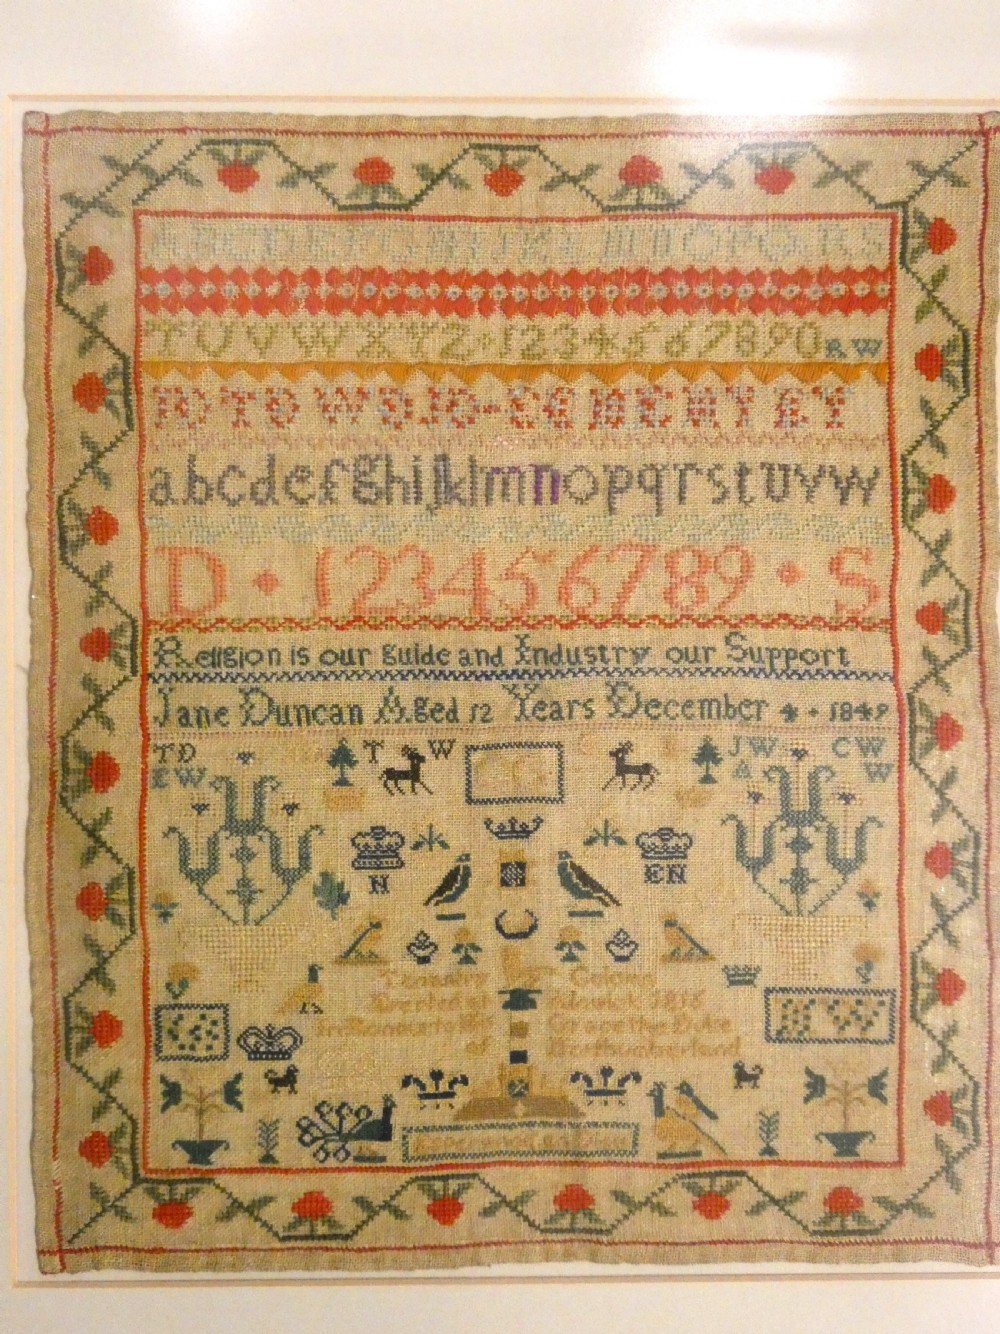 A B C D E F G H I J K L M N O P Q R S
T U V W X Y Z 1 2 3 4 5 6 7 8 9 0 R W
a b c d e f g h i j k l m n o p q r s t u v w
D 1 2 3 4 5 6 7 8 9 S
Religion is our guide and Industry our Support
Jane Duncan Aged 12 Years December 4 1849
T D T W J W C W
E W A W
N EN
Tenantry Colomn
Erected at Alnwick 1816
In Honour to His Grace the Duke
of Northumberland